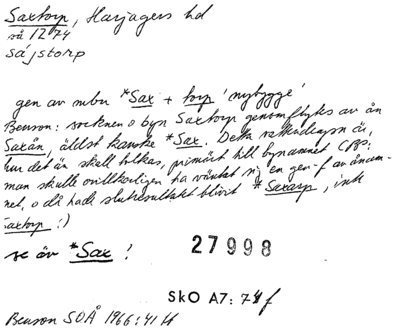 Saxtorp, Harjagers hd
så 1274
sájstorp
gen av mbn *Sax + torp 'nybygge'
Benson: socknen o byn Saxtorp genomflytes av ån
Saxån, äldst kanske *Sax. Detta vattendragsn är,
hur det än skall tolkas, primärt till bynamnet (
man skulle ovillkorligen ha väntat sig en gen-f av ånam-
net, o då hade slutresultatet blivit *Saxarp, ink
Saxtorp!)
se äv *Sax!
27998
SkO A7: 74 f
Benson SOÅ 1966:41 ff